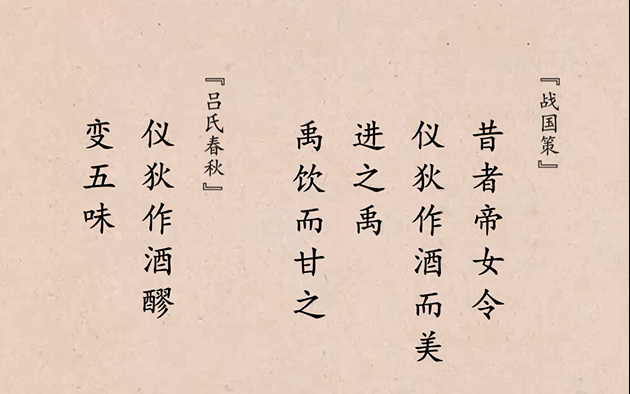 『战国策』
昔者帝女令
仪狄作酒而美
进之禹
禹饮而甘之
『吕氏春秋』
仪狄作酒醪
变五味